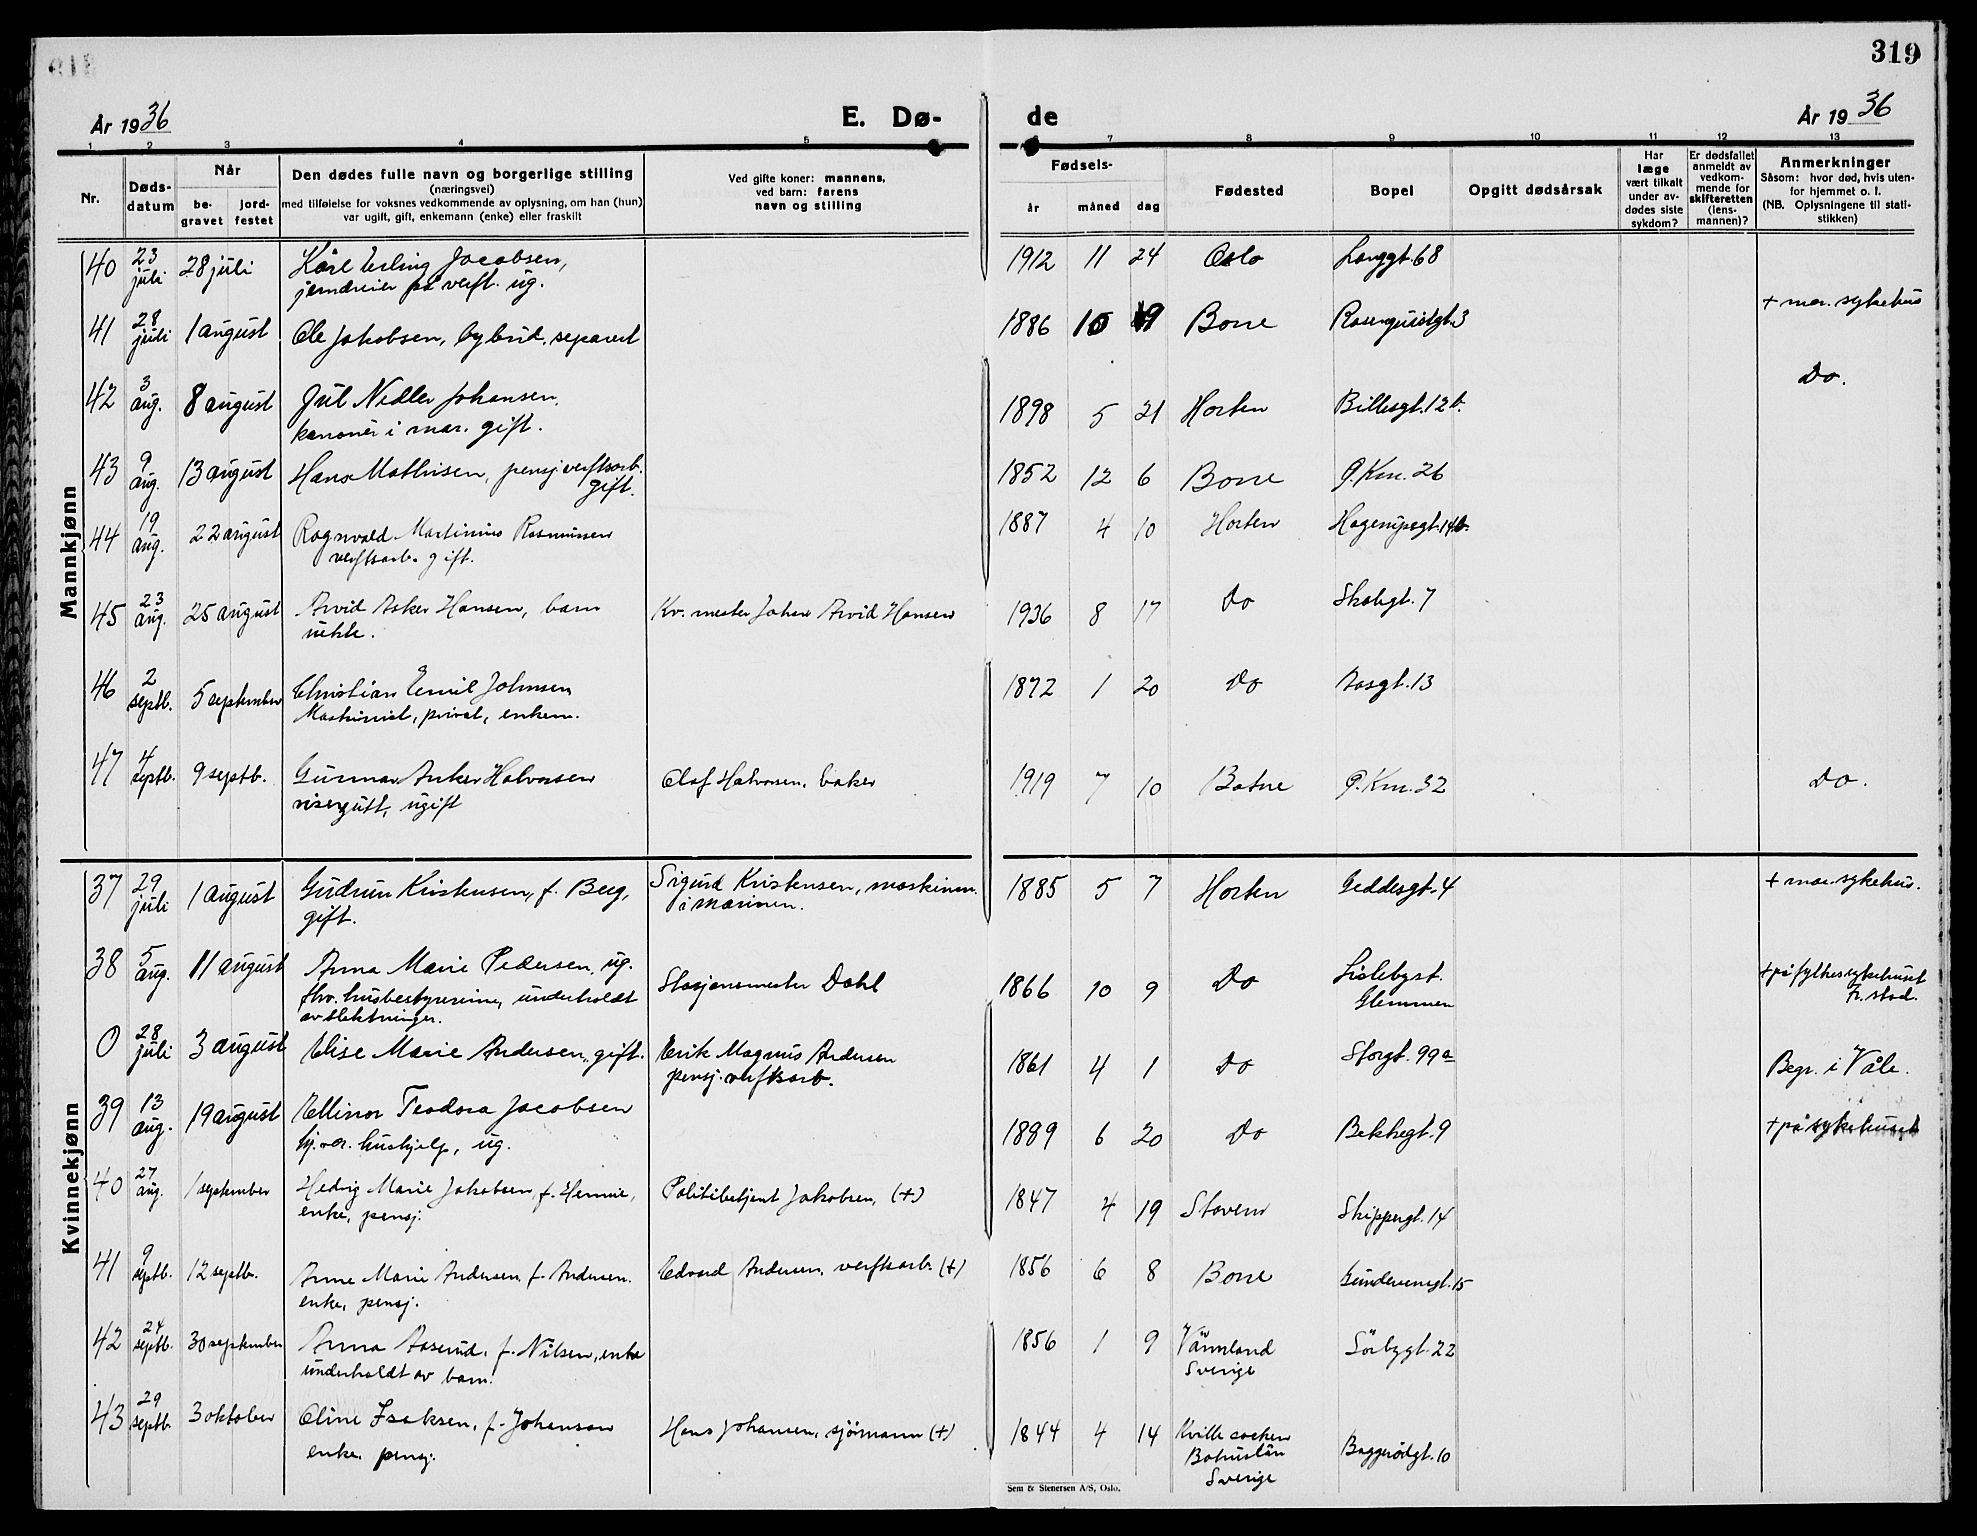 319
År 1936 E. Dø- de År 1936
1 2 3 4 5 6 7 8 9 10 11 12 13
Nr. Døds-datum Når be-gravet jord-festet
Den dødes fulle navn og borgerlige stilling
(næringsvei)
med tilføielse for voksnes vedkommende av oplysning, om han (hun)
var ugift, gift, enkemann (enke) eller fraskilt
Ved gifte koner: mannens,
ved barn: farens
navn og stilling
Fødsels- år måned dag
Fødested
Bopel
Opgitt dødsårsak
Har læge vært tilkalt under av-dødes siste sykdom?
Er dødsfallet anmeldt av vedkom-mende for skifteretten (lens-mannen)?
Anmerkninger
Såsom: hvor død, hvis uten-
for hjemmet o. l.
(NB. Oplysningene til stati-
stikken)
Mannkjønn
40 23 juli 28 juli Kåre Erling Jacobsen, 1912 11 24 Oslo Langgt. 68
jerndreier på verft. ug.
+ mar. sykehus
41 28 juli 1 august Ole Jakobsen, bybud, separert 1886 10 9 Borre Rosenquistgt. 3
Do.
42 3 aug. 8 august Jul Nedler Johansen, 1898 5 21 Horten Billesgt. 12b.
kanoner i mar. gift.
43 9 aug. 13 august Hans Mathisen, pensj. verftsarb. 1852 12 6 Borre Ø. Km. 26
gift.
44 19 aug. 22 august Ragnvald Martinius Rasmussen 1887 4 10 Horten
verftsarb. gift.
45 23 aug. 25 august Arvid Asker Hansen, barn Kv. mester Johan Arvid Hansen 1936 8 17 Do Skolegt. 7
uekte.
46 2 septb. 5 september Christian Emil Johnsen 1872 1 20 Do Aasgt. 13
Maskinist, privat, enkem.
47 4 septb. 9 septb. Gunnar Anker Halvorsen Olaf Halvorsen, baker 1919 7 10 Botne Ø. Km. 32 Do.
visergutt, ugift
Kvinnekjønn
37 29 juli 1 august Gudrun Kristensen, f. Berg, Sigurd Kristensen, maskinm. 1885 5 7 Horten Geddesgt. 4 + mar. sykehus.
gift. i marinen.
38 5 aug. 11 august Anna Marie Pedersen, ug. Stasjonsmester Dahl 1866 10 9 Do Lislebyst. + på fylkessykehuset
fhv. husbestyrerinne, underholdt Glemmen Fr.stad.
av slektninger.
0 28 juli 3 august Elise Marie Andersen, gift. Erik Magnus Andersen 1861 4 1 Do Storgt. 99a Begr. i Våle.
pensj. verftsarb.
39 13 aug. 19 august Ellinor Teodora Jacobsen 1889 6 20 Do Bekkegt. 9 + på sykehuset
hushjelp, ug.
40 27 aug. 1 september Hedvig Marie Jakobsen, f. Politibetjent Jakobsen, (+) 1847 4 19 Stavern Skippergt. 14
enke, pensj.
41 9 septb. 12 septb. Anne Marie Andersen, f. Andersen. Edvard Andersen, verftsarb. (+) 1856 6 8 Borre Gundersensgt. 15
enke, pensj.
42 24 septb. 30 september Anna Aaserud, f. Nilsen, enke 1856 1 9 Värmland Sørbygt. 22
underholdt av barn. Sverige
43 29 septb. 3 oktober Oline Isaksen, f. Johanson Hans Johansen, sjømann (+) 1844 4 14 Kville socken Baggerødgt. 10
enke, pensj. Bohuslän
Sverige
Sem & Stenersen A/S, Oslo.